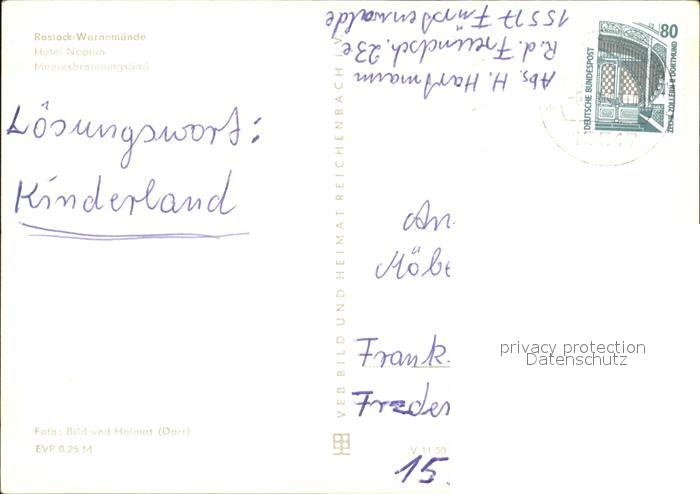 Rostock-Warnemünde
Hotel Neptun
Meeresbrandungsbad
Lösungswort:
Kinderland
Foto: Bild und Heimat (Darr)
EVP 0.25 M
VEB BILD UND HEIMAT REICHENBACH i.V.
V 11 50
Abs. H. Hartmann
R.d. Freundsch. 23e
15517 Fürstenwalde
80
DEUTSCHE BUNDESPOST
ZECHE ZOLLERN II DORTMUND
An
Möbe
Frank
Freder
15.
privacy protection
Datenschutz